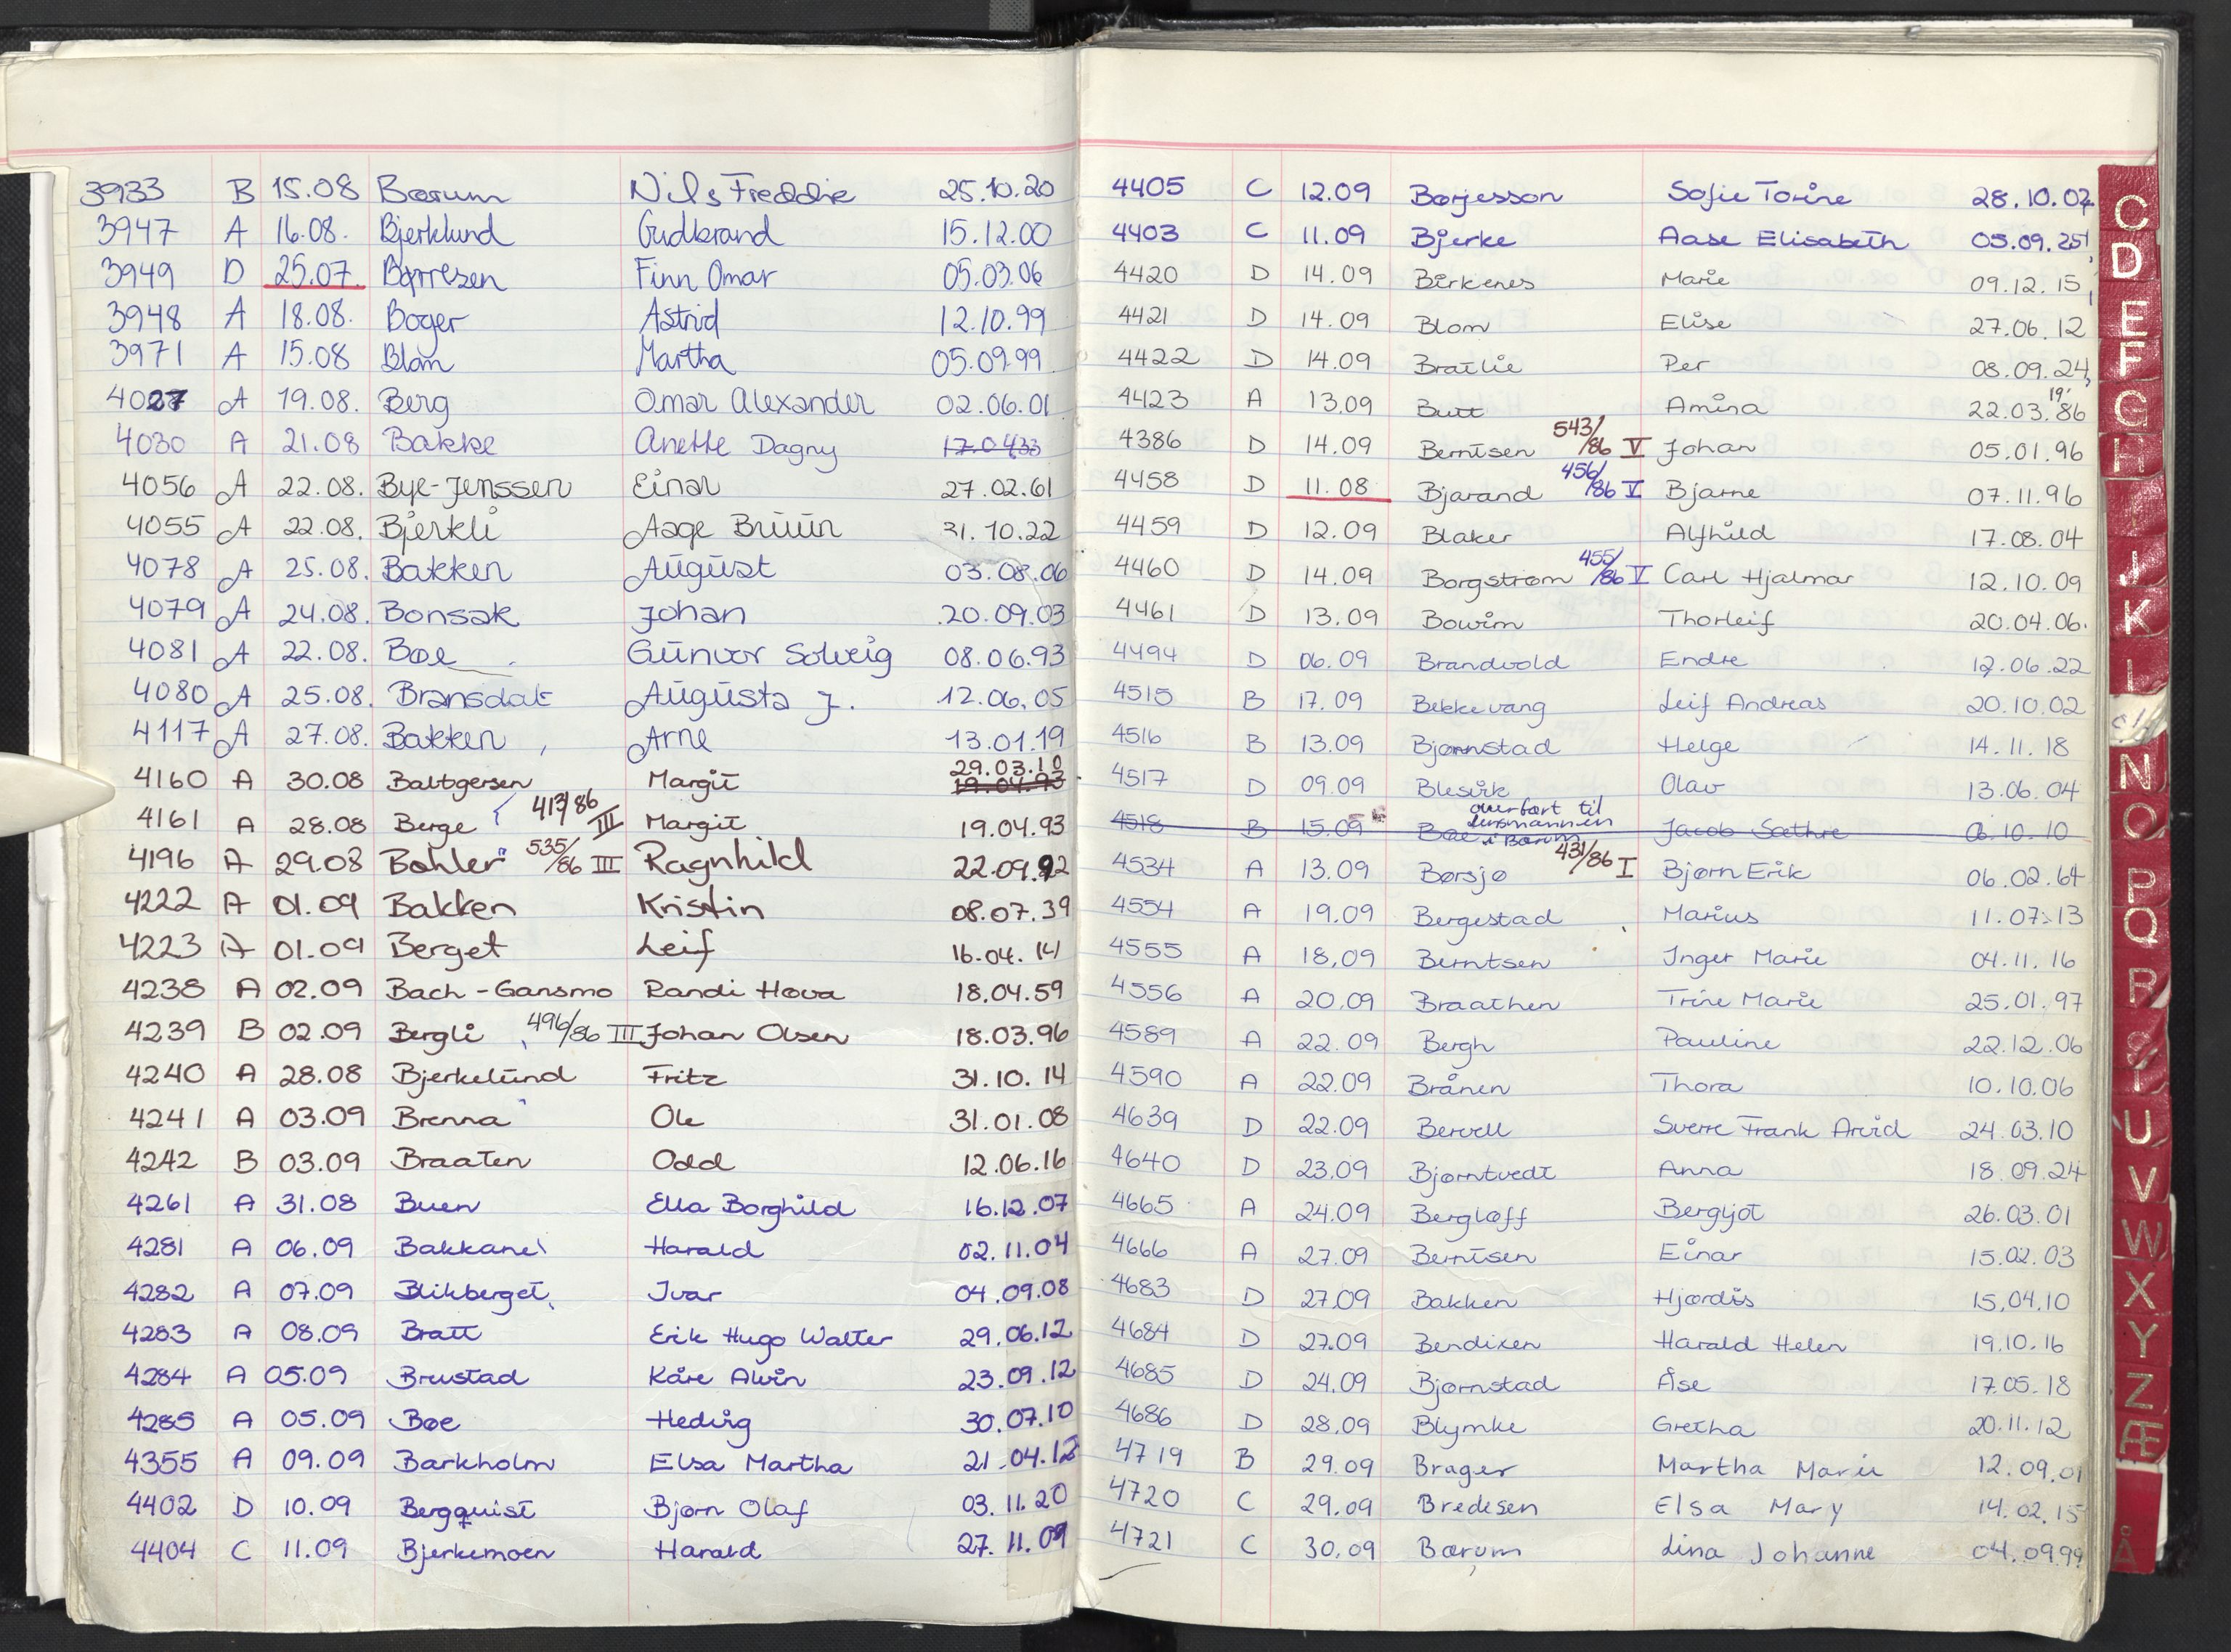 3933 B 15.08 Bærum Nils Freddie 25.10.20
3947 A 16.08. Bjerklund Gudbrand 15.12.00
3949 D 25.07. Børresen Finn Omar 05.03.06
3948 A 18.08. Boger Astrid 12.10.99
3971 A 15.08 Blom Martha 05.09.99
4027 A 19.08. Berg Omar Alexander 02.06.01
4030 A 21.08 Bakke Anette Dagny 17.04.33
4056 A 22.08. Bye-Jenssen Einar 27.02.61
4055 A 22.08. Bjerkli Aage Bruun 31.10.22
4078 A 25.08. Bakken August 03.08.06
4079 A 24.08. Bonsak Johan 20.09.03
4081 A 22.08. Bøe Gunvor Solveig 08.06.93
4080 A 25.08. Bransdal Augusta J. 12.06.05
4117 A 27.08. Bakken Arne 13.01.19
29.03.10
4160 A 30.08 Baltgersen Margit 19.04.93
4161 A 28.08 Berge 413/86 III Margit 19.04.93
4196 A 29.08 Bøhler 535/86 III Ragnhild 22.09.92
4222 A 01.09 Bakken Kristin 08.07.39
4223 A 01.09 Berget Leif 16.04.14
4238 A 02.09 Bach-Gansmo Randi Hova 18.04.59
4239 B 02.09 Bergli 496/86 III Johan Olsen 18.03.96
4240 A 28.08 Bjerkelund Fritz 31.10.14
4241 A 03.09 Brenna Ole 31.01.08
4242 B 03.09 Braaten Odd 12.06.16
4261 A 31.08 Buen Ella Borghild 16.12.07
4281 A 06.09 Bakkane Harald 02.11.04
4282 A 07.09 Blikberget Ivar 04.09.08
4283 A 08.09 Bratt Erik Hugo Walter 29.06.12
4284 A 05.09 Brustad Kåre Alvin 23.09.12
4285 A 05.09 Bøe Hedvig 30.07.10
4355 A 09.09 Barkholm Elsa Martha 21.04.12
4402 D 10.09 Bergquist Bjørn Olaf 03.11.20
4404 C 11.09 Bjerkemoen Harald 27.11.09
4405 C 12.09 Børjesson Sofie Torine 28.10.07
4403 C 11.09 Bjerke Aase Elisabeth 05.09.25
4420 D 14.09 Birkenes Marie 09.12.15
4421 D 14.09 Blom Elise 27.06.12
4422 D 14.09 Bratlie Per 08.09.24
19
4423 A 13.09 Butt Amina 22.03.86
4386 D 14.09 Berntsen 543/86 V Johan 05.01.96
4458 D 11.08 Bjarand 456/86 V Bjarne 07.11.96
4459 D 12.09 Blaker Alfhild 17.08.04
4460 D 14.09 Borgstrøm 455/86 V Carl Hjalmar 12.10.09
4461 D 13.09 Bowim Thorleif 20.04.06.
4494 D 06.09 Brandvold Endre 12.06.22
4515 B 17.09 Bekkevang Leif Andreas 20.10.02
4516 B 13.09 Bjørnstad Helge 14.11.18
4517 D 09.09 Blesvik Olav 13.06.04
overført til
lensmannen
4518 B 15.09 Bøe i Bærum Jacob Sæthre 06.10.10
4534 A 13.09 Børsjø 431/86 I Bjørn Erik 06.02.64
4554 A 19.09 Bergestad Marius 11.07.13
4555 A 18.09 Berntsen Inger Marie 04.11.16
4556 A 20.09 Braathen Trine Marie 25.01.97
4589 A 22.09 Bergh Pauline 22.12.06
4590 A 22.09 Brånen Thora 10.10.06
4639 D 22.09 Bervell Sverre Frank Arvid 24.03.10
4640 D 23.09 Bjørntvedt Anna 18.09.24
4665 A 24.09 Bergløff Bergljot 26.03.01
4666 A 27.09 Berntsen Einar 15.02.03
4683 D 27.09 Bakken Hjørdis 15.04.10
4684 D 27.09 Bendixen Harald Helen 19.10.16
4685 D 24.09 Bjørnstad Åse 17.05.18
4686 D 28.09 Blymke Gretha 20.11.12
4719 B 29.09 Brager Martha Marie 12.09.01
4720 C 29.09 Bredesen Elsa Mary 14.02.15
4721 C 30.09 Bærum Lina Johanne 04.09.99
C
D
E
F
G
H
I
J
K
L
N
O
P
Q
R
S
T
U
V
W
X
Y
Z
Æ
Å